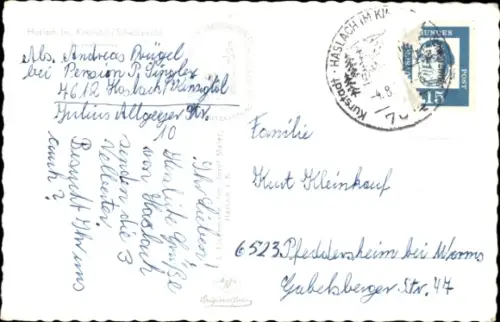 Haslach im Kinzigtal/Schwarzwald
Abs. Andreas Prügel
bei Pension P. Singler
7612 Haslach Kinzigtal
Julius Allgeyer Str.
10
Ihr Lieben!
Herzliche Grüße
von Haslach
senden die 3
Besucht Ihr uns
auch?
HASLACH IM
Kurstadt
-4.8.
BUNDES
POST
15
Familie
Kurt Kleinkauf
6523 Pfeddersheim bei Worms
Gabelsberger-Str. 47